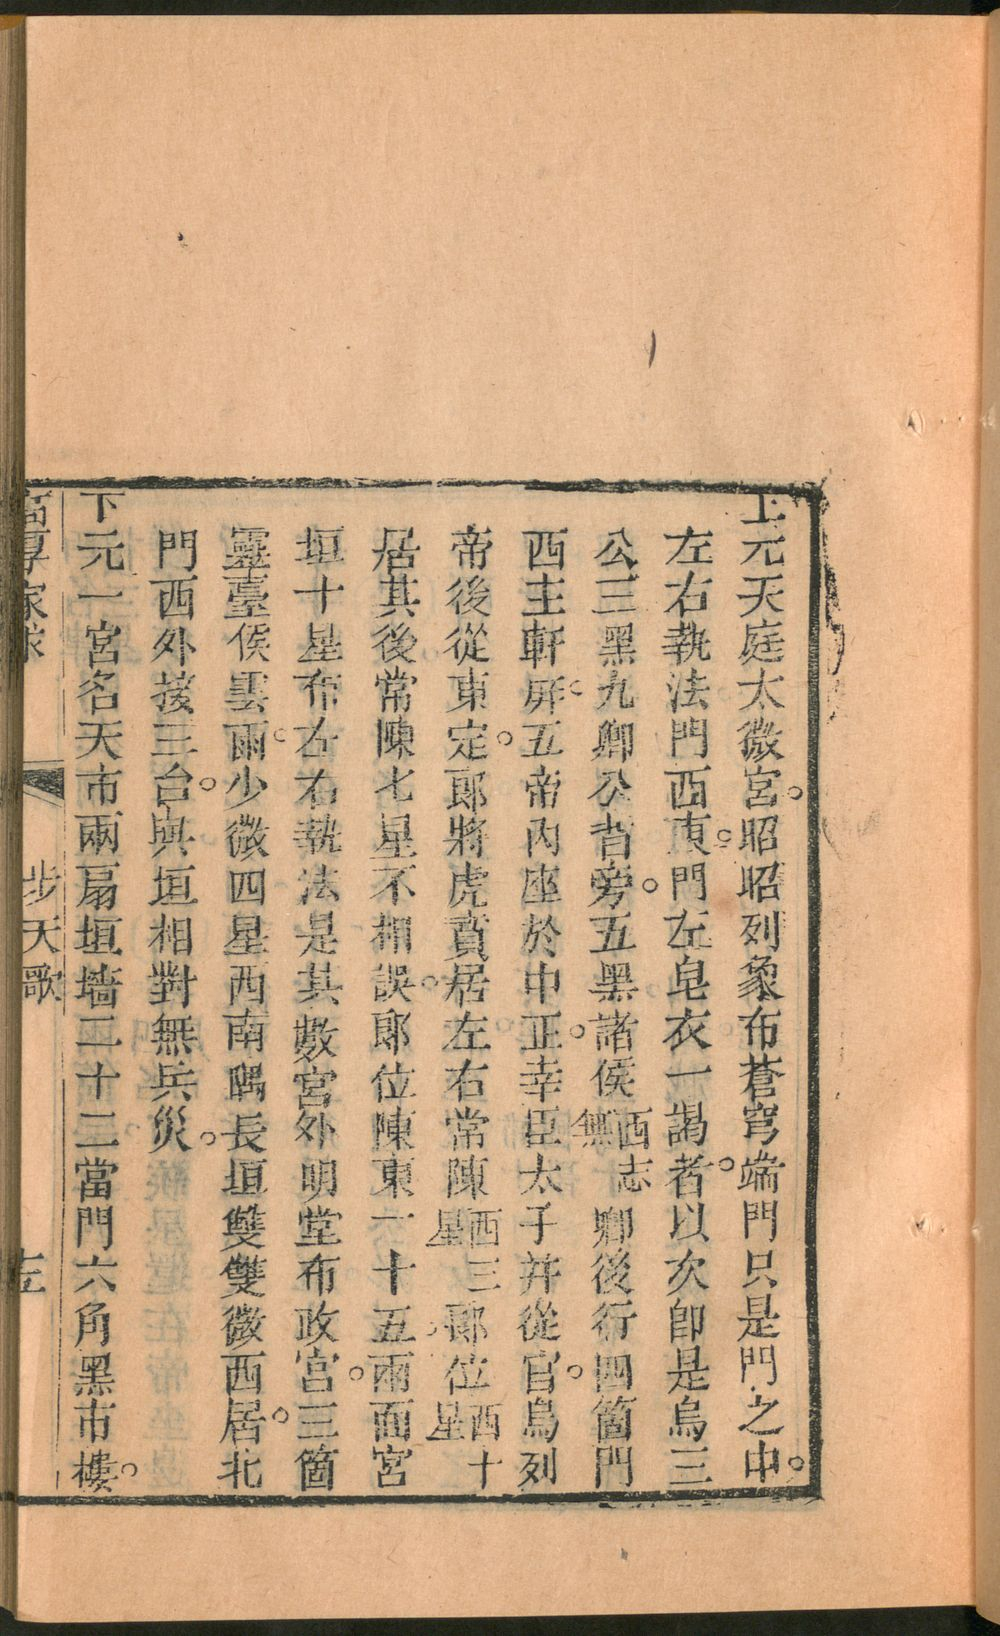 上元天庭太微宮。昭昭列象布蒼穹端門只是門之中。
左右執法門西東。門左皂衣一謁者。以次即是烏三
公三黑九卿公背旁。五黑諸侯西志無卿後行四箇門
西主軒屏。五帝內座於中正。幸臣太子并從官。烏列
帝後從東定。郎將虎賁居左右常陳西三星郎位西十星
居其後常陳七星不相誤。郎位陳東一十五兩面宮
垣十星布左右執法是其數宮外明堂布政宮。三箇
靈臺侯雲雨。少微四星西南隅長垣雙雙微西居。北
門西外接三台。與垣相對無兵災。
下元一宮名天市兩扇垣墻二十二當門六角黑市樓。
步天歌